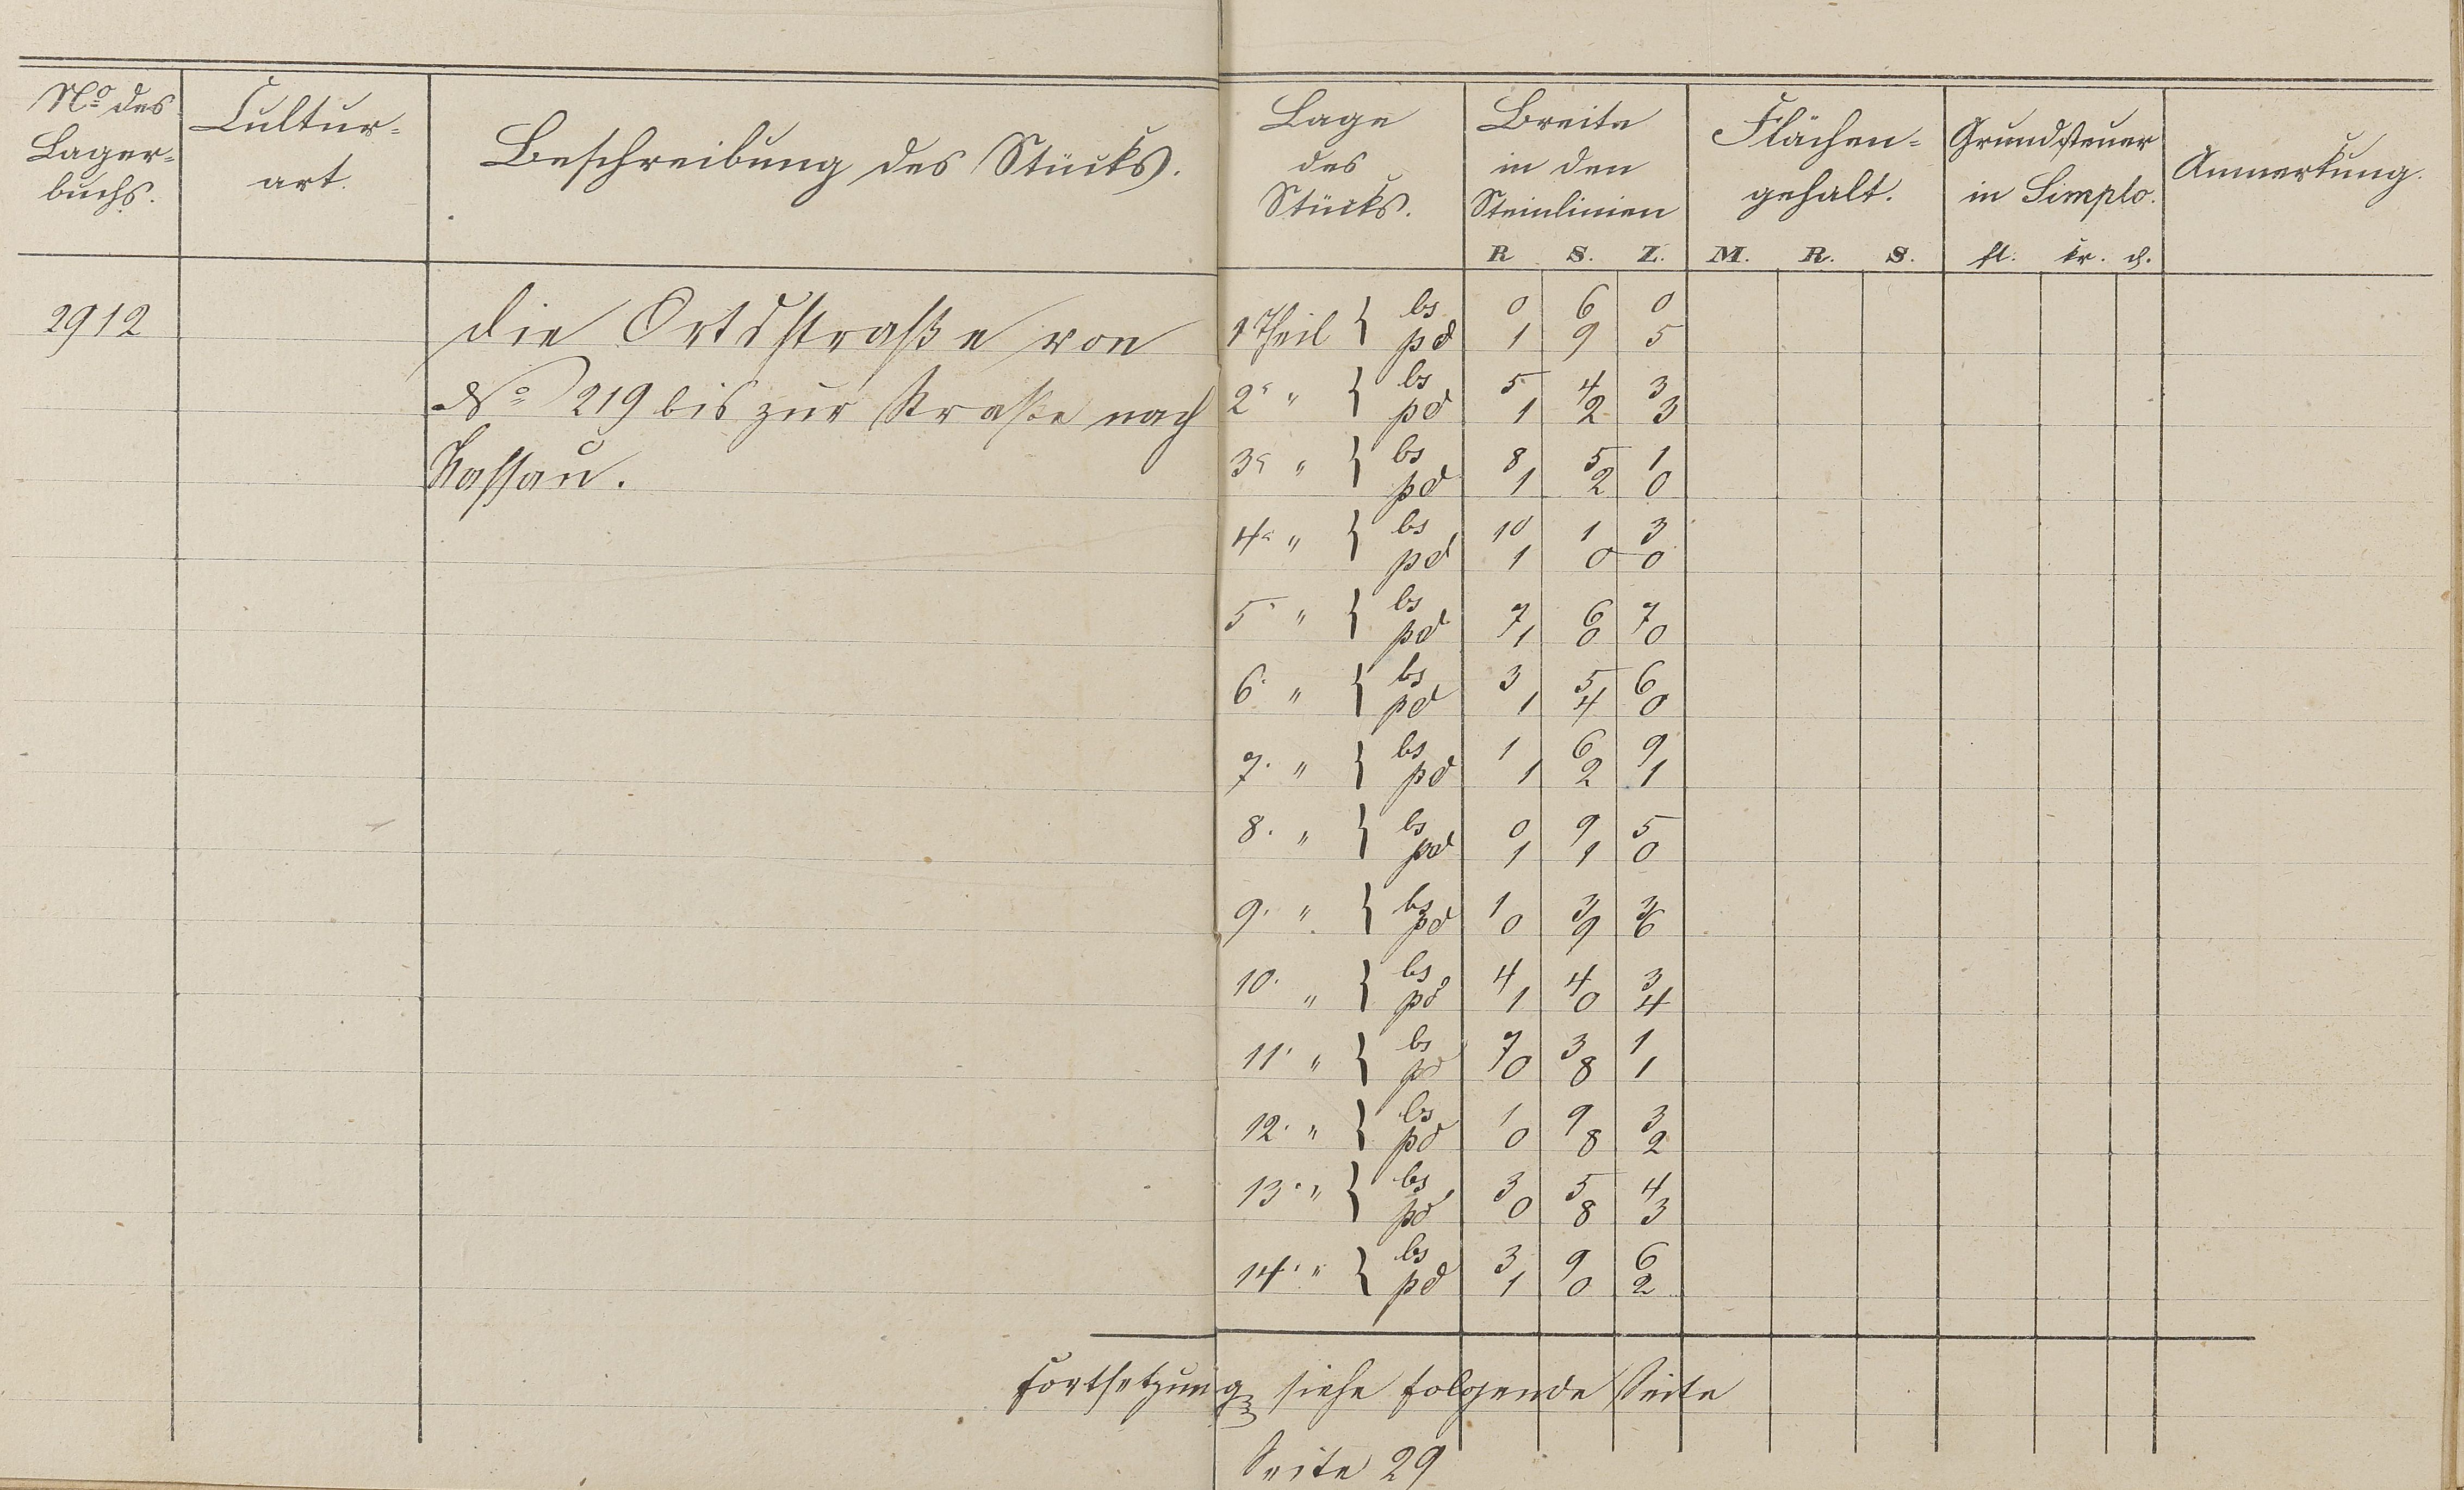 No des Lager=buchs.
Cultur=art.
Beschreibung des Stücks.
Lage des Stücks.
Breite in den Steinlinien
Flächen=gehalt.
Grundsteuer in Simplo.
Anmerkung.
R S. Z. M. R. S. fl. kr. d.
2912 die Ortsstraße von 1 Theil { bs 0 6 0
pd 1 9 5
No 219 bis zur Straße nach 2r " { bs 5 4 3
pd 1 2 3
Nassau. 3r " { bs 8 5 1
pd 1 2 0
4r " { bs 10 1 3
pd 1 0 0
5. " { bs 7 6 7
pd 1 0 0
6. " { bs 3 5 6
pd 1 4 0
7. " { bs 1 6 9
pd 1 2 1
8. " { bs 0 9 5
pd 1 1 0
9. " { bs 1 3 3
pd 0 9 6
10. " { bs 4 4 3
pd 1 0 4
11. " { bs 7 3 1
pd 0 8 1
12. " { bs 1 9 3
pd 0 8 2
13. " { bs 3 5 4
pd 0 8 3
14. " { bs 3 9 6
pd 1 0 2
Fortsetzung siehe folgende Seite
Seite 29